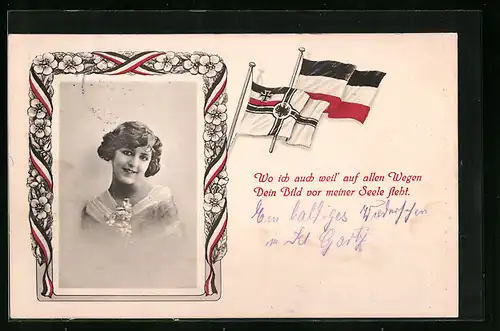 Wo ich auch weil' auf allen Wegen
Dein Bild vor meiner Seele steht.
Ein baldiges Wiedersehen
in St